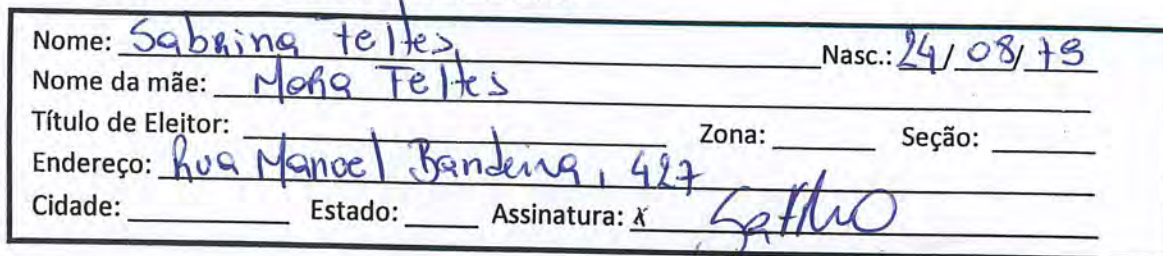 Nome: Sabrina Feltes Nasc.: 24/08/79
Nome da mãe: Feltes
Título de Eleitor: Zona: Seção:
Endereço: Rua Manoel Bandeira, 427
Cidade: Estado: Assinatura: x